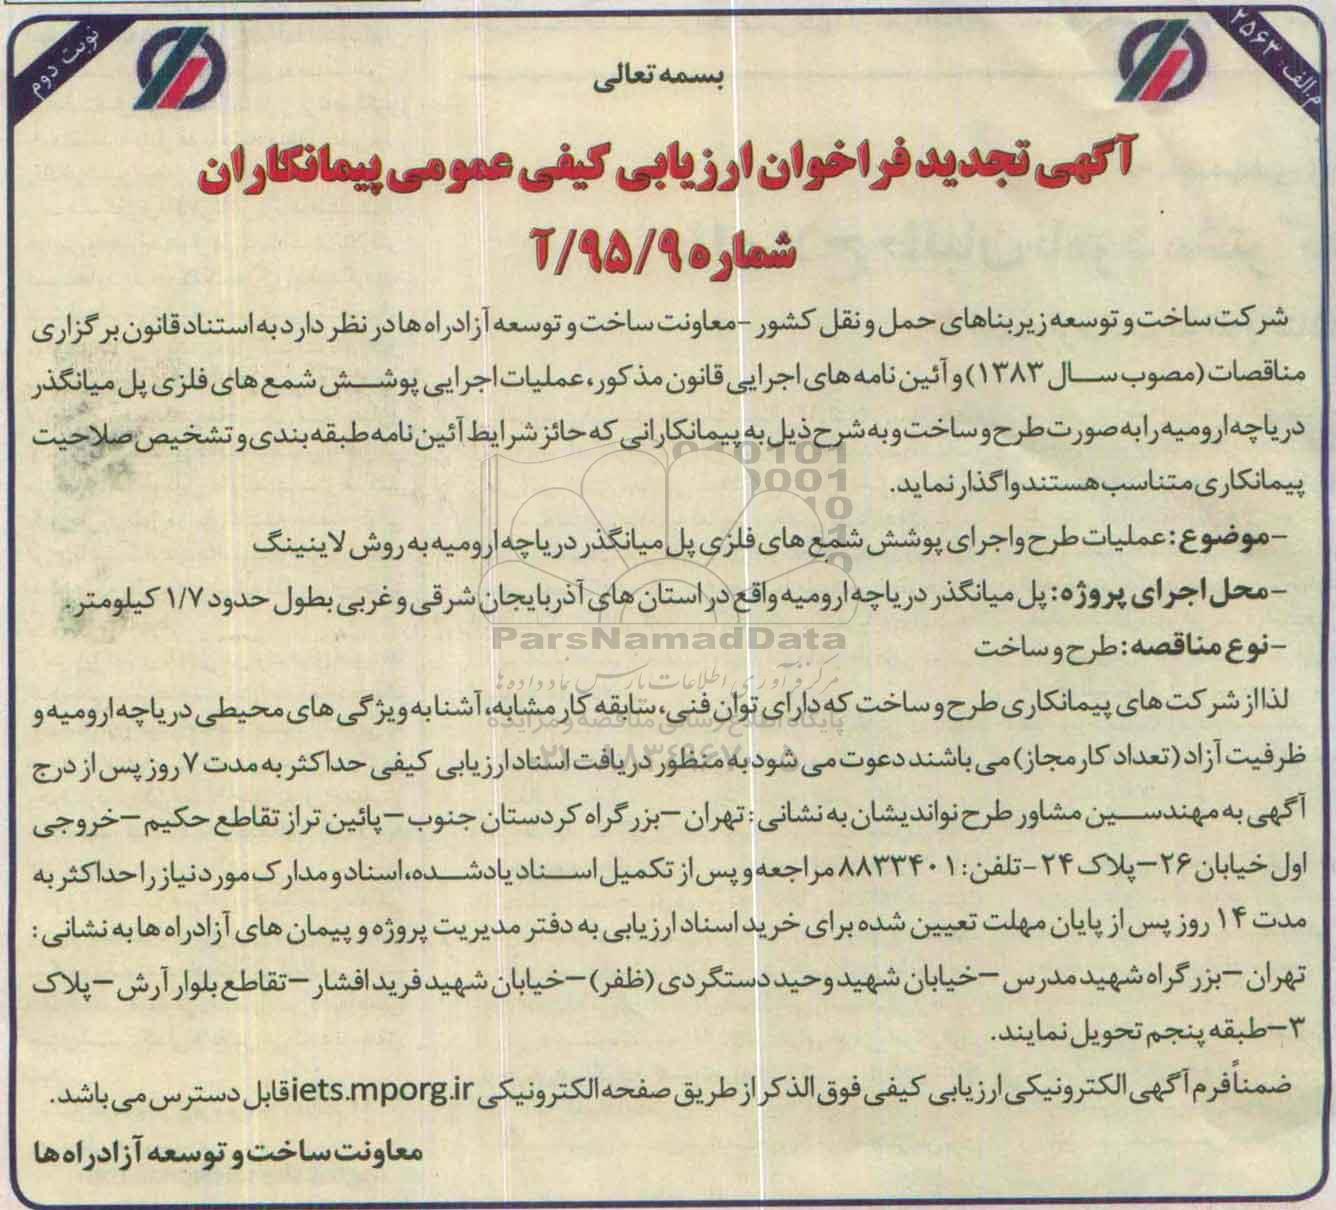 م.الف: ۲۵۶۳
نوبت دوم
بسمه تعالی
آگهی تجدید فراخوان ارزیابی کیفی عمومی پیمانکاران
شماره ۹/۹۵/آ
شرکت ساخت و توسعه زیربناهای حمل و نقل کشور -معاونت ساخت و توسعه آزادراه ها در نظر دارد به استناد قانون برگزاری
مناقصات (مصوب سال ۱۳۸۳) و آئین نامه های اجرایی قانون مذکور، عملیات اجرایی پوشش شمع های فلزی پل میانگذر
دریاچه ارومیه را به صورت طرح و ساخت و به شرح ذیل به پیمانکارانی که حائز شرایط آئین نامه طبقه بندی و تشخیص صلاحیت
پیمانکاری متناسب هستند واگذار نماید.
-موضوع: عملیات طرح و اجرای پوشش شمع های فلزی پل میانگذر دریاچه ارومیه به روش لاینینگ
-محل اجرای پروژه: پل میانگذر دریاچه ارومیه واقع در استان های آذربایجان شرقی و غربی بطول حدود ۱/۷ کیلومتر.
-نوع مناقصه: طرح و ساخت
لذا از شرکت های پیمانکاری طرح و ساخت که دارای توان فنی، سابقه کار مشابه، آشنا به ویژگی های محیطی دریاچه ارومیه و
ظرفیت آزاد (تعداد کار مجاز) می باشند دعوت می شود به منظور دریافت اسناد ارزیابی کیفی حداکثر به مدت ۷ روز پس از درج
آگهی به مهندسین مشاور طرح نواندیشان به نشانی: تهران –بزرگراه کردستان جنوب –پائین تر از تقاطع حکیم –خروجی
اول خیابان ۲۶–پلاک ۲۴ -تلفن: ۸۸۳۳۴۰۱ مراجعه و پس از تکمیل اسناد یادشده، اسناد و مدارک مورد نیاز را حداکثر به
مدت ۱۴ روز پس از پایان مهلت تعیین شده برای خرید اسناد ارزیابی به دفتر مدیریت پروژه و پیمان های آزادراه ها به نشانی:
تهران –بزرگراه شهید مدرس –خیابان شهید وحید دستگردی (ظفر) –خیابان شهید فرید افشار –تقاطع بلوار آرش –پلاک
۳–طبقه پنجم تحویل نمایند.
ضمناً فرم آگهی الکترونیکی ارزیابی کیفی فوق الذکر از طریق صفحه الکترونیکی iets.mporg.ir قابل دسترس می باشد.
معاونت ساخت و توسعه آزادراه ها
ParsNamadData
مرکز فرآوری اطلاعات پارس نماد داده ها
پایگاه اطلاع رسانی مناقصه و مزایده